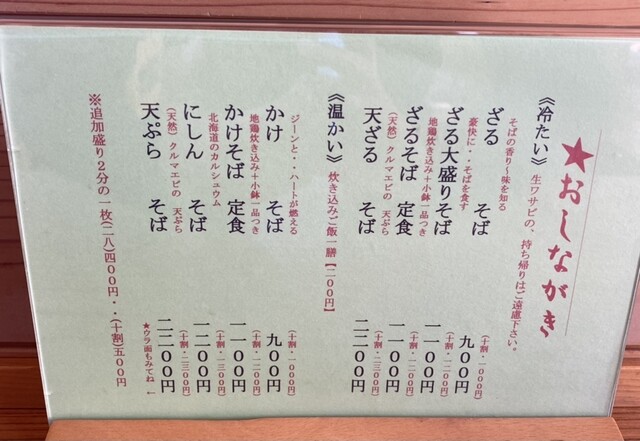 ★おしながき
《冷たい》 生ワサビの、持ち帰りはご遠慮下さい。
そばの香り〜味を知る
ざる そば 九〇〇円
(十割・一〇〇〇円)
豪快に・・そばを食す
ざる大盛りそば 一一〇〇円
(十割・一二〇〇円)
地鶏炊き込み+小鉢一品つき
ざるそば 定食 一一〇〇円
(天然)クルマエビの 天ぷら
天ざる そば 二二〇〇円
(十割・二三〇〇円)
《温かい》 炊き込みご飯一膳【二〇〇円】
ジーンと・・ハートが燃える
かけ そば 九〇〇円
(十割・一〇〇〇円)
地鶏炊き込み+小鉢一品つき
かけそば 定食 一一〇〇円
(十割・一二〇〇円)
北海道のカルシュウム
にしん そば 一二〇〇円
(十割・一三〇〇円)
(天然)クルマエビの 天ぷら
天ぷら そば 二二〇〇円
(十割・二三〇〇円)
※追加盛り2分の一枚(二八)四〇〇円・・(十割)五〇〇円
★ウラ面もみてね ←